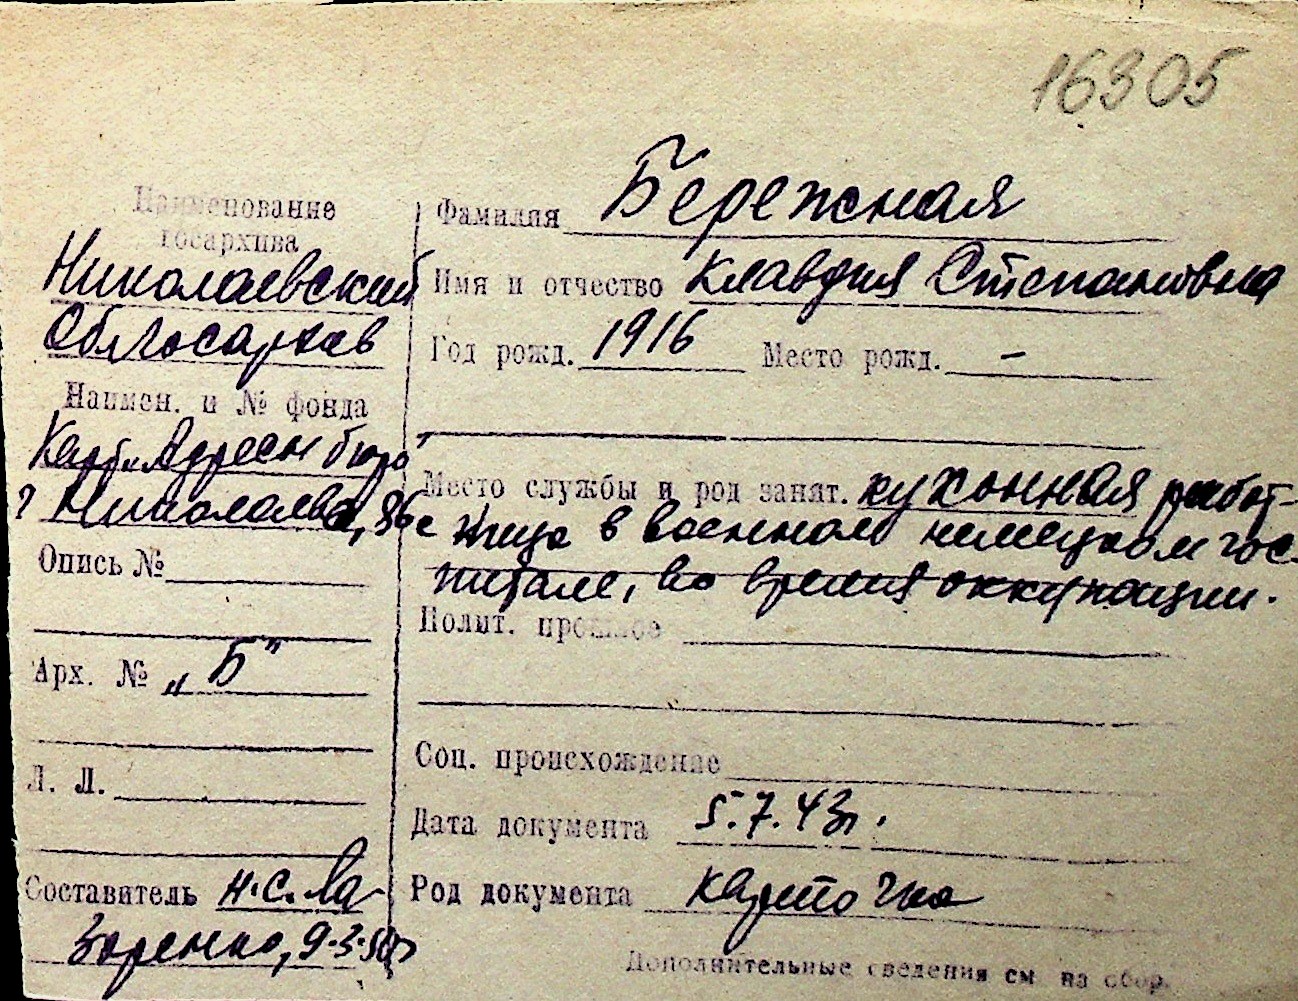 16305
Наименование
госархива
Николаевский
Облгосархив
Наимен. и № фонда
Карт. Адресн бюро
г Николаева,
Опись №
Арх. № „Б"
Л. Л.
Составитель Н.С. Ла-
заренко, 9.3.50г
Фамилия Бережная
Имя и отчество Клавдия Степановна
Год рожд. 1916 Место рожд. –
Место службы и род занят. кухонная работ-
ница в военном немецком гос-
питале, во время оккупации.
Полит. прошлое
Соц. происхождение
Дата документа 5.7.43г.
Род документа карточка
Дополнительные сведения см на обор.